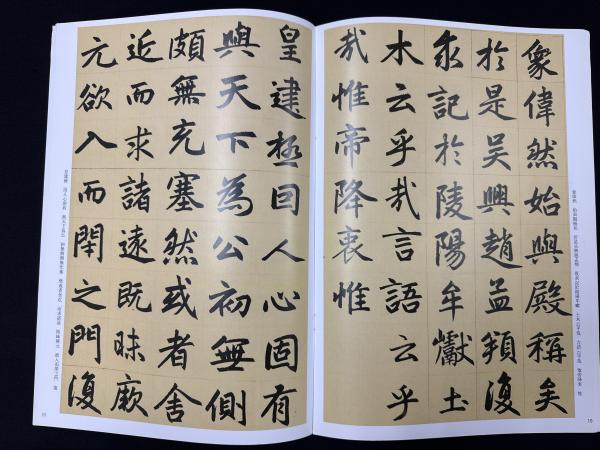 象偉然始與殿稱矣
於是吳興趙孟頫復
求記於陵陽牟巘土
木云乎哉言語云乎
哉惟帝降衷惟
皇建極囙人心固有
與天下為公初無側
頗無充塞然或者舍
近而求諸遠既昧厥
元欲入而閇之門復